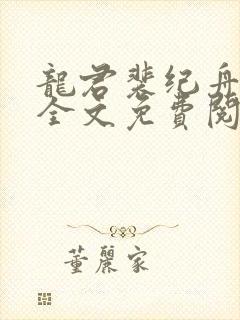 龍君裴纪舟
全文免費閱
董麗家